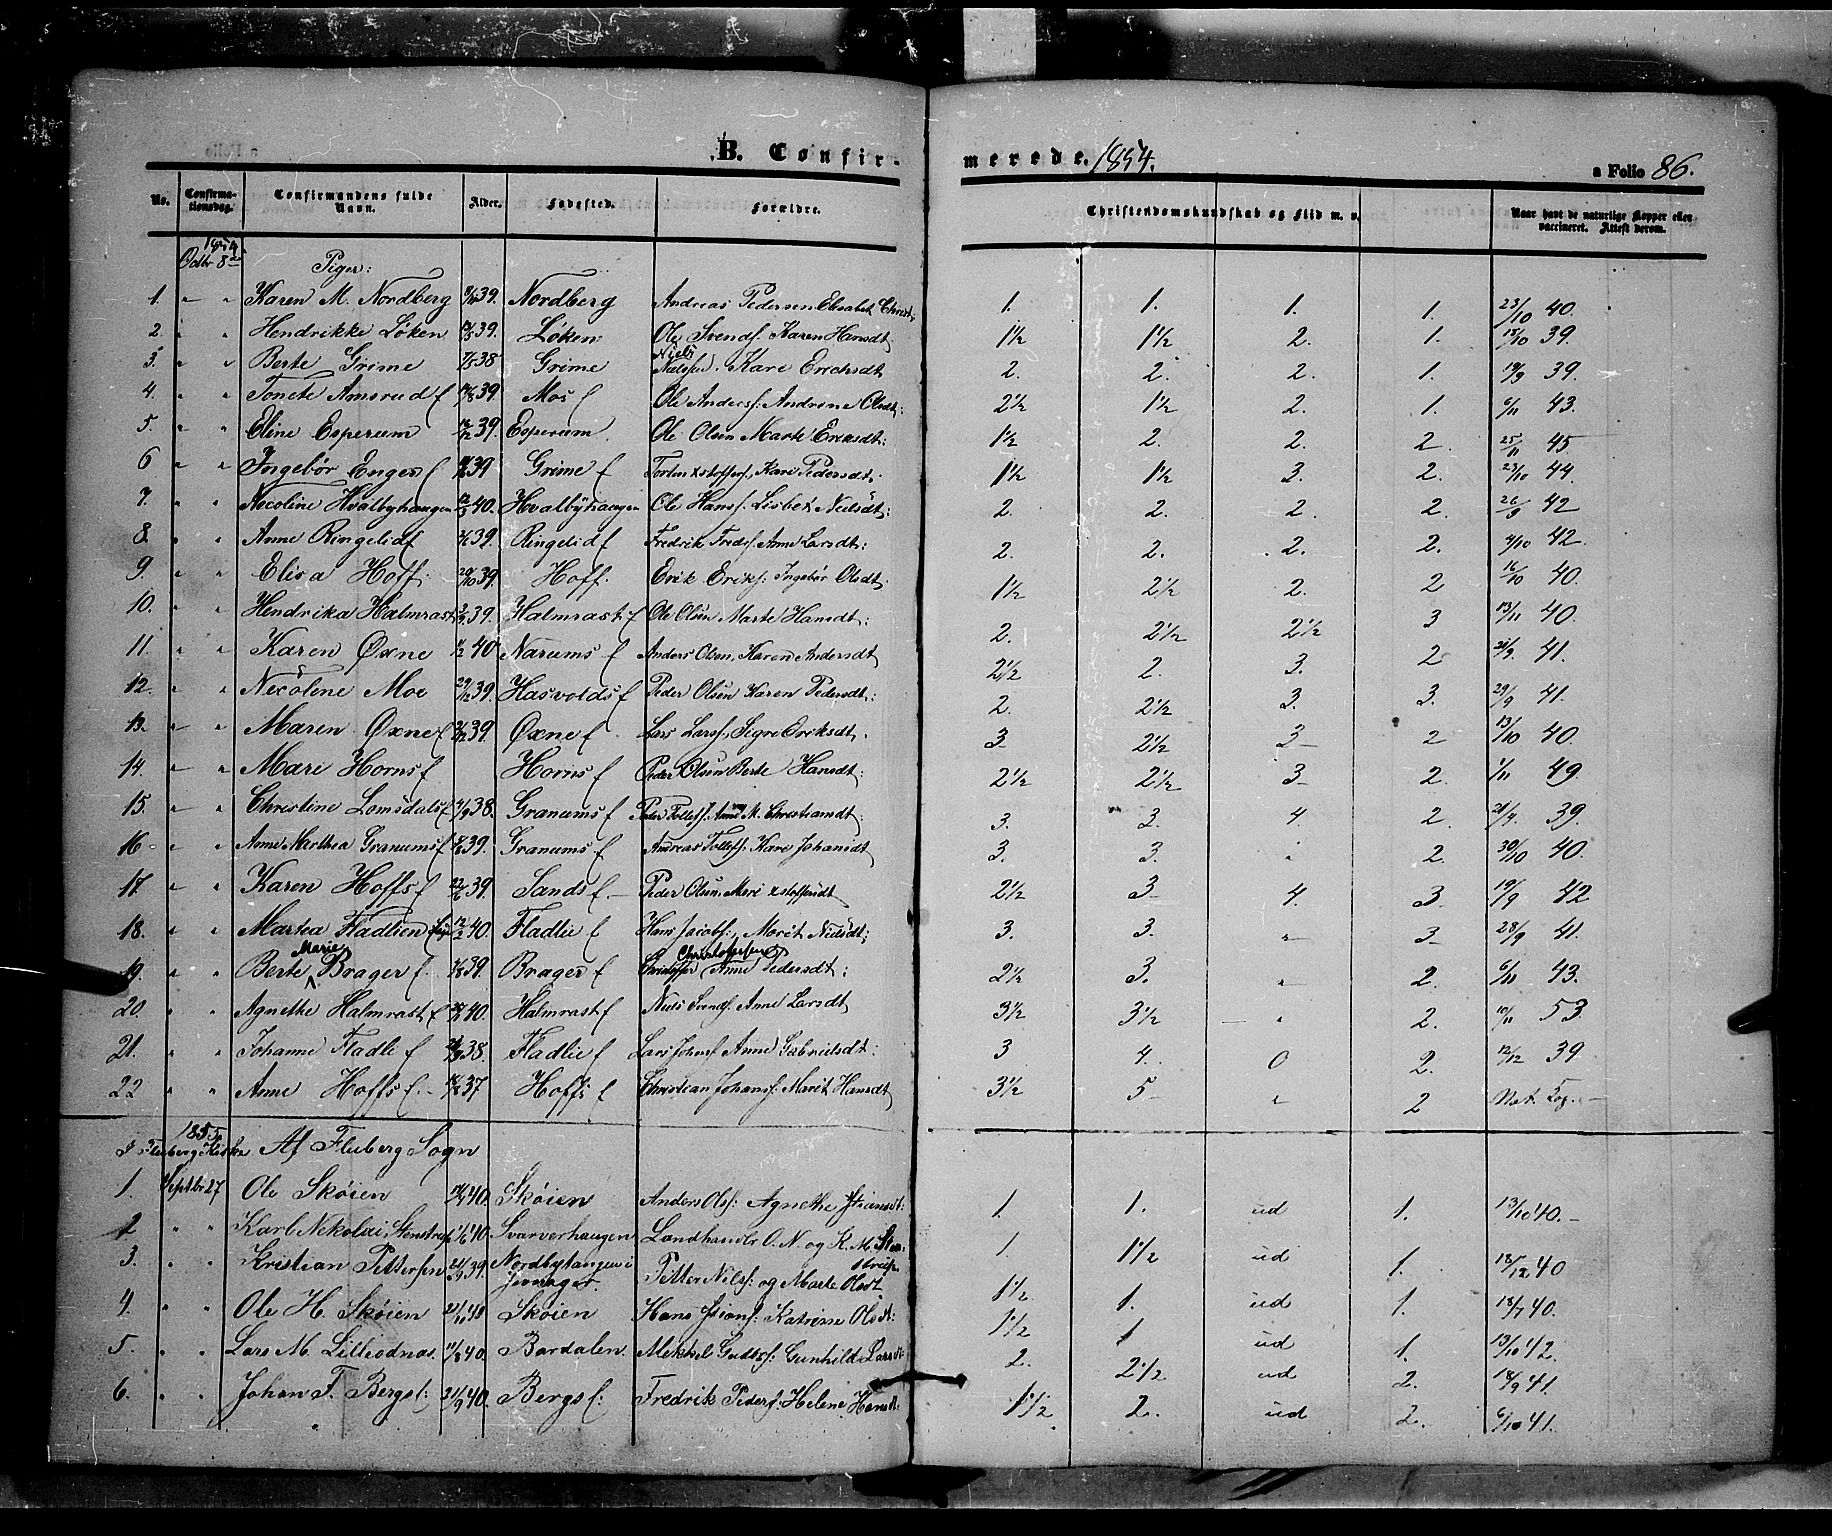 B. Confirmerede. 1854. a Folio 86.
No. Confirmationsdag. Confirmandens fulde Navn. Alder. Fødested. Forældre. Christendomskundskab og Flid m. v. Naar havt de naturlige Kopper eller vaccineret. Attest derom.
1854 Octbr 8de Piger:
1. " " Karen M. Nordberg 39. Nordberg Andreas Pedersen Elisabet 1. 1. 1. 1. 23/10 40.
2. " " Hendrikke Løken 39. Løken Ole Svends. Karen Hansdt 1½ 1½ 2. 1. 39.
3. " " Berte Grime 38 Grime Niels Kari Ericksdt 2. 2. 2. 1. 19/9 39.
4. " " Tonete Amsrud 39. Mos Ole Anders. Andrine Olsdt: 2½ 1½ 2. 1. 6/11 43.
5. " " Eline Esperum 12/12 39. Esperum. Ole Olsen Marte Ericksdt: 1½ 2. 2. 2. 25/11 45
6 " " Ingebør Engen 39 Grime Kari Pedersdt: 1½ 1½ 3. 2. 23/10 44.
7. " " Necoline Hvalbyhaugen 12/3 40. Hvalbyhaugen Ole Hans. Lisbet Nielsdt: 2. 2. 2. 2. 26/9 42
8. " " Anne Ringelid 39. Ringelid Fredrik Freds. Anne Larsdt: 2. 2. 2. 2. 42.
9. " " Elisa Hoff. 29/10 39. Hoff. Erik Eriks: Ingebør Olsdt 1½ 2½ 2. 2 16/10 40.
10. " " Hendrika Halmrast 39. Halmrast Ole Olsen Marte Hansdt: 2. 2½ 2½ 3 13/11 40.
11. " " Karen Øxne 40 Narums Anders Olsen, Karen Andersdt 2½ 2. 3. 2 41.
12. " " Necolene Moe 29/12 39. Hasvolds Peder Olsen Karen Pedersdt: 2. 2½ 3. 3. 29/9 41.
13. " " Maren Øxne 39. Øxne Lars Larss. Sigre Ericksdt. 3 2½ 3 2 13/10 40.
14. " " Mari Horns Horns Peder Olsen Berte Hansdt: 2½ 2½ 3 2. 1/11 49
15 " " Christine Lomsdals 38. Granums Peder Tollefs. Anne M. Christiansdt: 3. 3. 4. 2. 39.
16 " " Anne Marthea Granums 39. Granums Andreas Tollefs. Kare Johansdt 3. 3. " 2. 30/10 40.
17 " " Karen Hoffs 39. Sands Peder Olsen, Mari 2½ 3 4. 3 19/9 42
18. " " Martea Fladlien 12/2 40. Fladlie Hans Jacobs., Marit Nielsdt: 3. 3. " 3 23/9 41.
19. " " Berte Marie Brager 39. Brager Christoffer Christoffersen Anne Pedersdt: 2½ 3. " 2. 6/11 43.
20. " " Agnethe Halmrast 40. Halmrast Niels Svends. Anne Larsdt 3½ 3½ " 2. 10/11 53.
21. " " Johanne Fladli 38. Fladlie Lars Johans. Anne Gabrielsdt: 3 4. 0 2. 12/12 39
22 " " Anne Hoffs 37 Hoffs Christian Johans: Marit Hansdt 3½ 5 " 2 Nat. Kop.
1855 I Fluberg Kirke Af Fluberg Sogn
1. Septbr 27 Ole Skøien 40. Skøien Anders Ols: Agnethe 1. 1. ud 1. 13/10 40.
2 " " Karl Nikolai Stenstrup 1/6 40 Svarverhaugen Landhandlr O. N. og K. M. Stenstrup 1. 1½ ud 1. 18/12 40
3. " " Kristian Pettersen 21/9 39. Nordbytangen i Jevnager. Petter Nils. og Marte Olsdt 1½ 1. ud 1. 18/7 40.
4. " " Ole H. Skøien 40 Skøien Hans Katrine Olsdt: 1½ 1 ud 1. 13/10 42.
5. " " Lars M. Lilleodnæs 11/8 40. Bardalen Mekkel Gudts. Gunhild Larsdt: 2. 2½ ud 2. 18/9 41.
6. " " Johan F. Bergs: 21/9 40. Bergs: Fredrik Peders. Helene Hansdt: 1½ 2. ud 2. 6/10 41.